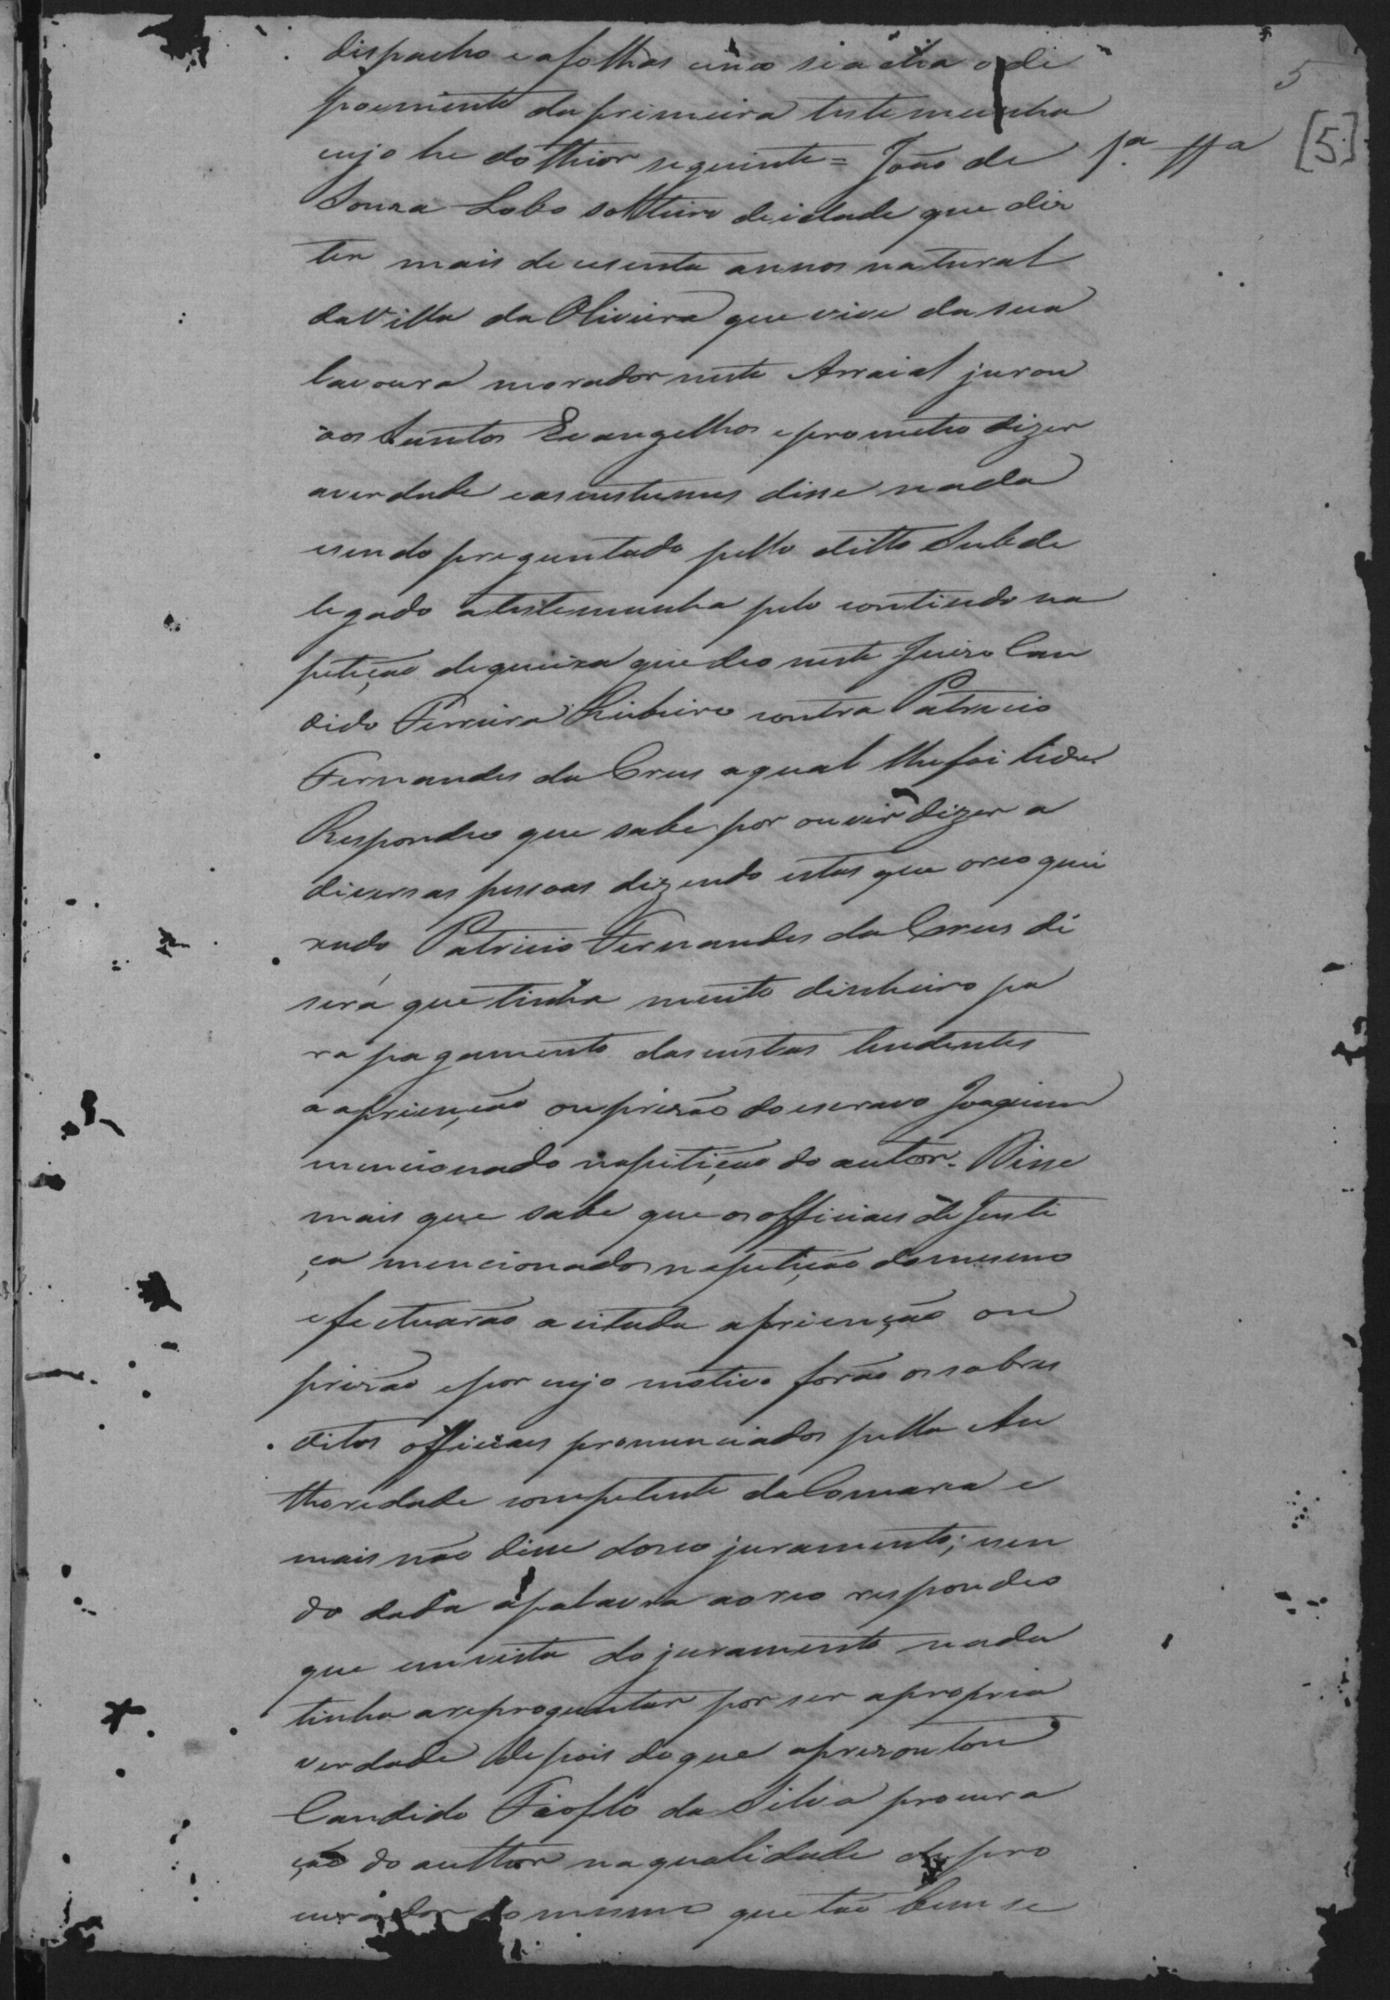 5
dispacho e a folhas cinco se acha o di
poimento da primeira testemunha
cujo he do thior seguinte = João de 1.ª ttª [5]
Souza Lobo solteiro de idade que diz
ter mais de cesenta annos natural
da Villa da Oliveira que vive da sua
lavoura morador neste Arraial jurou
aos Santos Evangelhos e prometeo dizer
averdade e aos custumes disse nada
esendo preguntado pello ditto Subde
legado a testemunha pelo contiudo na
petição de queixa que deo neste Juizo Can
dido Ferreira Ribeiro contra Patricio
Fernandes da Crus aqual lhe foi lida
Respondeo que sabe por ouvir dizer a
diversas pessoas dizendo estas que oreo quei
xado Patricio Fernandes da Crus di
será que tinha muito dinheiro pa
ra pagamento das custas tendentes
a aprienção ou prizão do escravo Joaquim
mencionado na petição do autor. Disse
mais que sabe que os officiaes de Justi
ça mencionados na petição do mesmo
efectuarão a citada aprienção ou
prizão e por cujo motivo forão os sobras
ditos officiaes pronunciados pella Au
thoridade competente da Comarca e
mais não disse do seo juramento; esen
do dada apalavra ao reo respondeo
que em vista do juramento nada
tinha areproguntar por ser apropria
verdade depois do que aprezentou
Candido Tioflo da Silva procura
ção do author na qualidade de pro
curador do mesmo que tão bem se